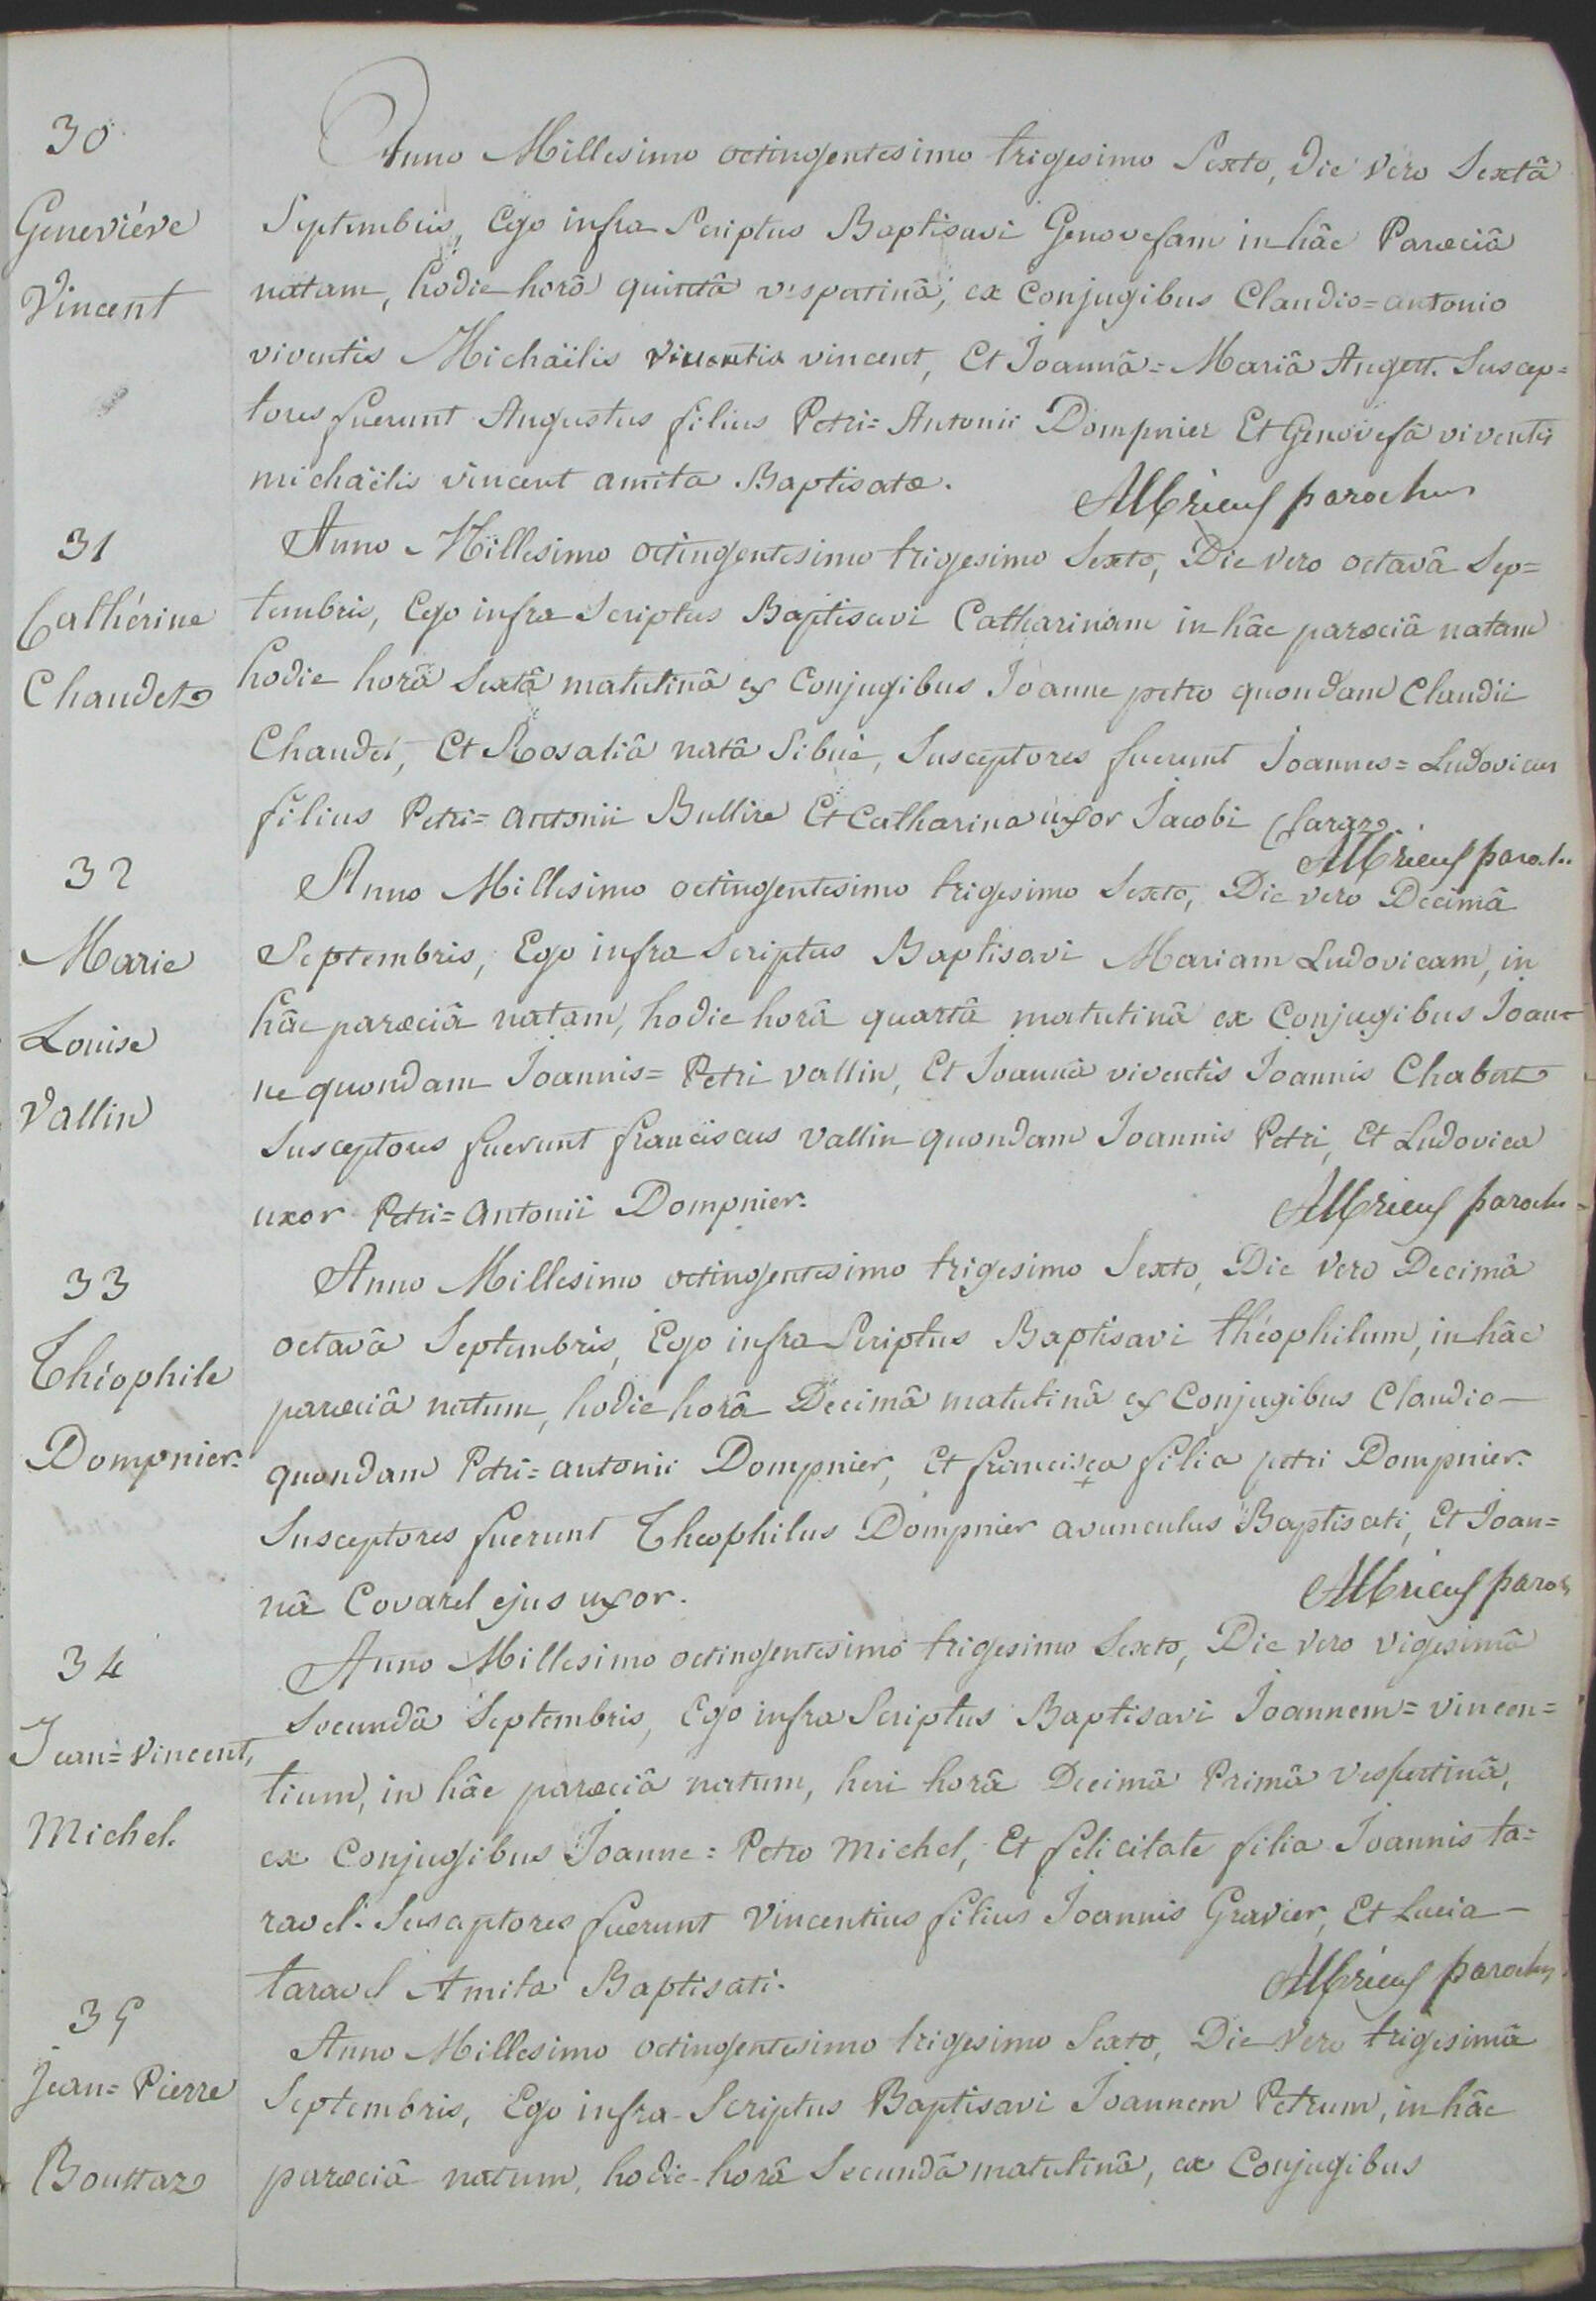 30
Geneviéve
Vincent
Anno Millesimo octingentesimo trigesimo Sexto, die vero Sextâ
Septembris, Ego infra Scriptus Baptisavi Genovefam in hâc Parœciâ
natam, hodie horâ quintâ vespertinâ, ex Conjugibus Claudio=antonio
viventis Michaëlis viventis vincent, Et Joannâ=Mariâ Suscep=
tores fuerunt Augustus filius Petri=Antonii Dompnier Et Genovefâ viventis
michaëlis vincent amita Baptisatæ. parochus
31
Cathérine
Chaudet
Anno Millesimo octingentesimo trigesimo Sexto, Die vero octavâ Sep=
tembris, Ego infra Scriptus Baptisavi Catharinam in hâc parœciâ natam
hodie horâ Sextâ matutinâ ex Conjugibus Joanne petro quondam Claudii
Chaudet, Et Rosaliâ natâ Sibué, Susceptores fuerunt Joannes=Ludovicus
filius Petri=antonii Bullire Et Catharina uxor Jacobi
32
Marie
Louise
Vallin
Anno Millesimo octingentesimo trigesimo Sexto, Die vero Decimâ
Septembris, Ego infra Scriptus Baptisavi Mariam Ludovicam, in
hâc parœciâ natam, hodie horâ quartâ matutinâ ex Conjugibus Joan=
ne quondam Joannis=Petri vallin, Et Joannâ viventis Joannis Chabert
Susceptores fuerunt franciscus vallin quondam Joannis Petri, Et Ludovica
uxor Petri=antonii Dompnier. parochus
33
Théophile
Dompnier.
Anno Millesimo octingentesimo trigesimo Sexto, Die vero Decimâ
octavâ Septembris, Ego infra Scriptus Baptisavi théophilum, in hâc
parœciâ natum, hodie horâ Decimâ matutinâ ex Conjugibus Claudio
quondam Petri=antonii Dompnier, Et francisca filia petri Dompnier.
Susceptores fuerunt Theophilus Dompnier avunculus Baptisati, Et Joan=
nâ Covarel ejus uxor.
34
Jean=Vincent,
Michel.
Anno Millesimo octingentesimo trigesimo Sexto, Die vero vigesimâ
Secundâ Septembris, Ego infra Scriptus Baptisavi Joannem=vincen=
tium, in hâc parœciâ natum, heri horâ Decimâ Primâ vespertinâ,
ex Conjugibus Joanne=Petro Michel, Et felicitate filia Joannis ta=
ravel. Susceptores fuerunt Vincentius filius Joannis Gravier, Et Lucia
taravel Amita Baptisati. parochus
35
Jean=Pierre
Bouttaz
Anno Millesimo octingentesimo trigesimo Sexto, Die Vero trigesimâ
Septembris, Ego infra Scriptus Baptisavi Joannem Petrum, in hâc
parœciâ natum, hodie horâ Secundâ matutinâ, ex Conjugibus